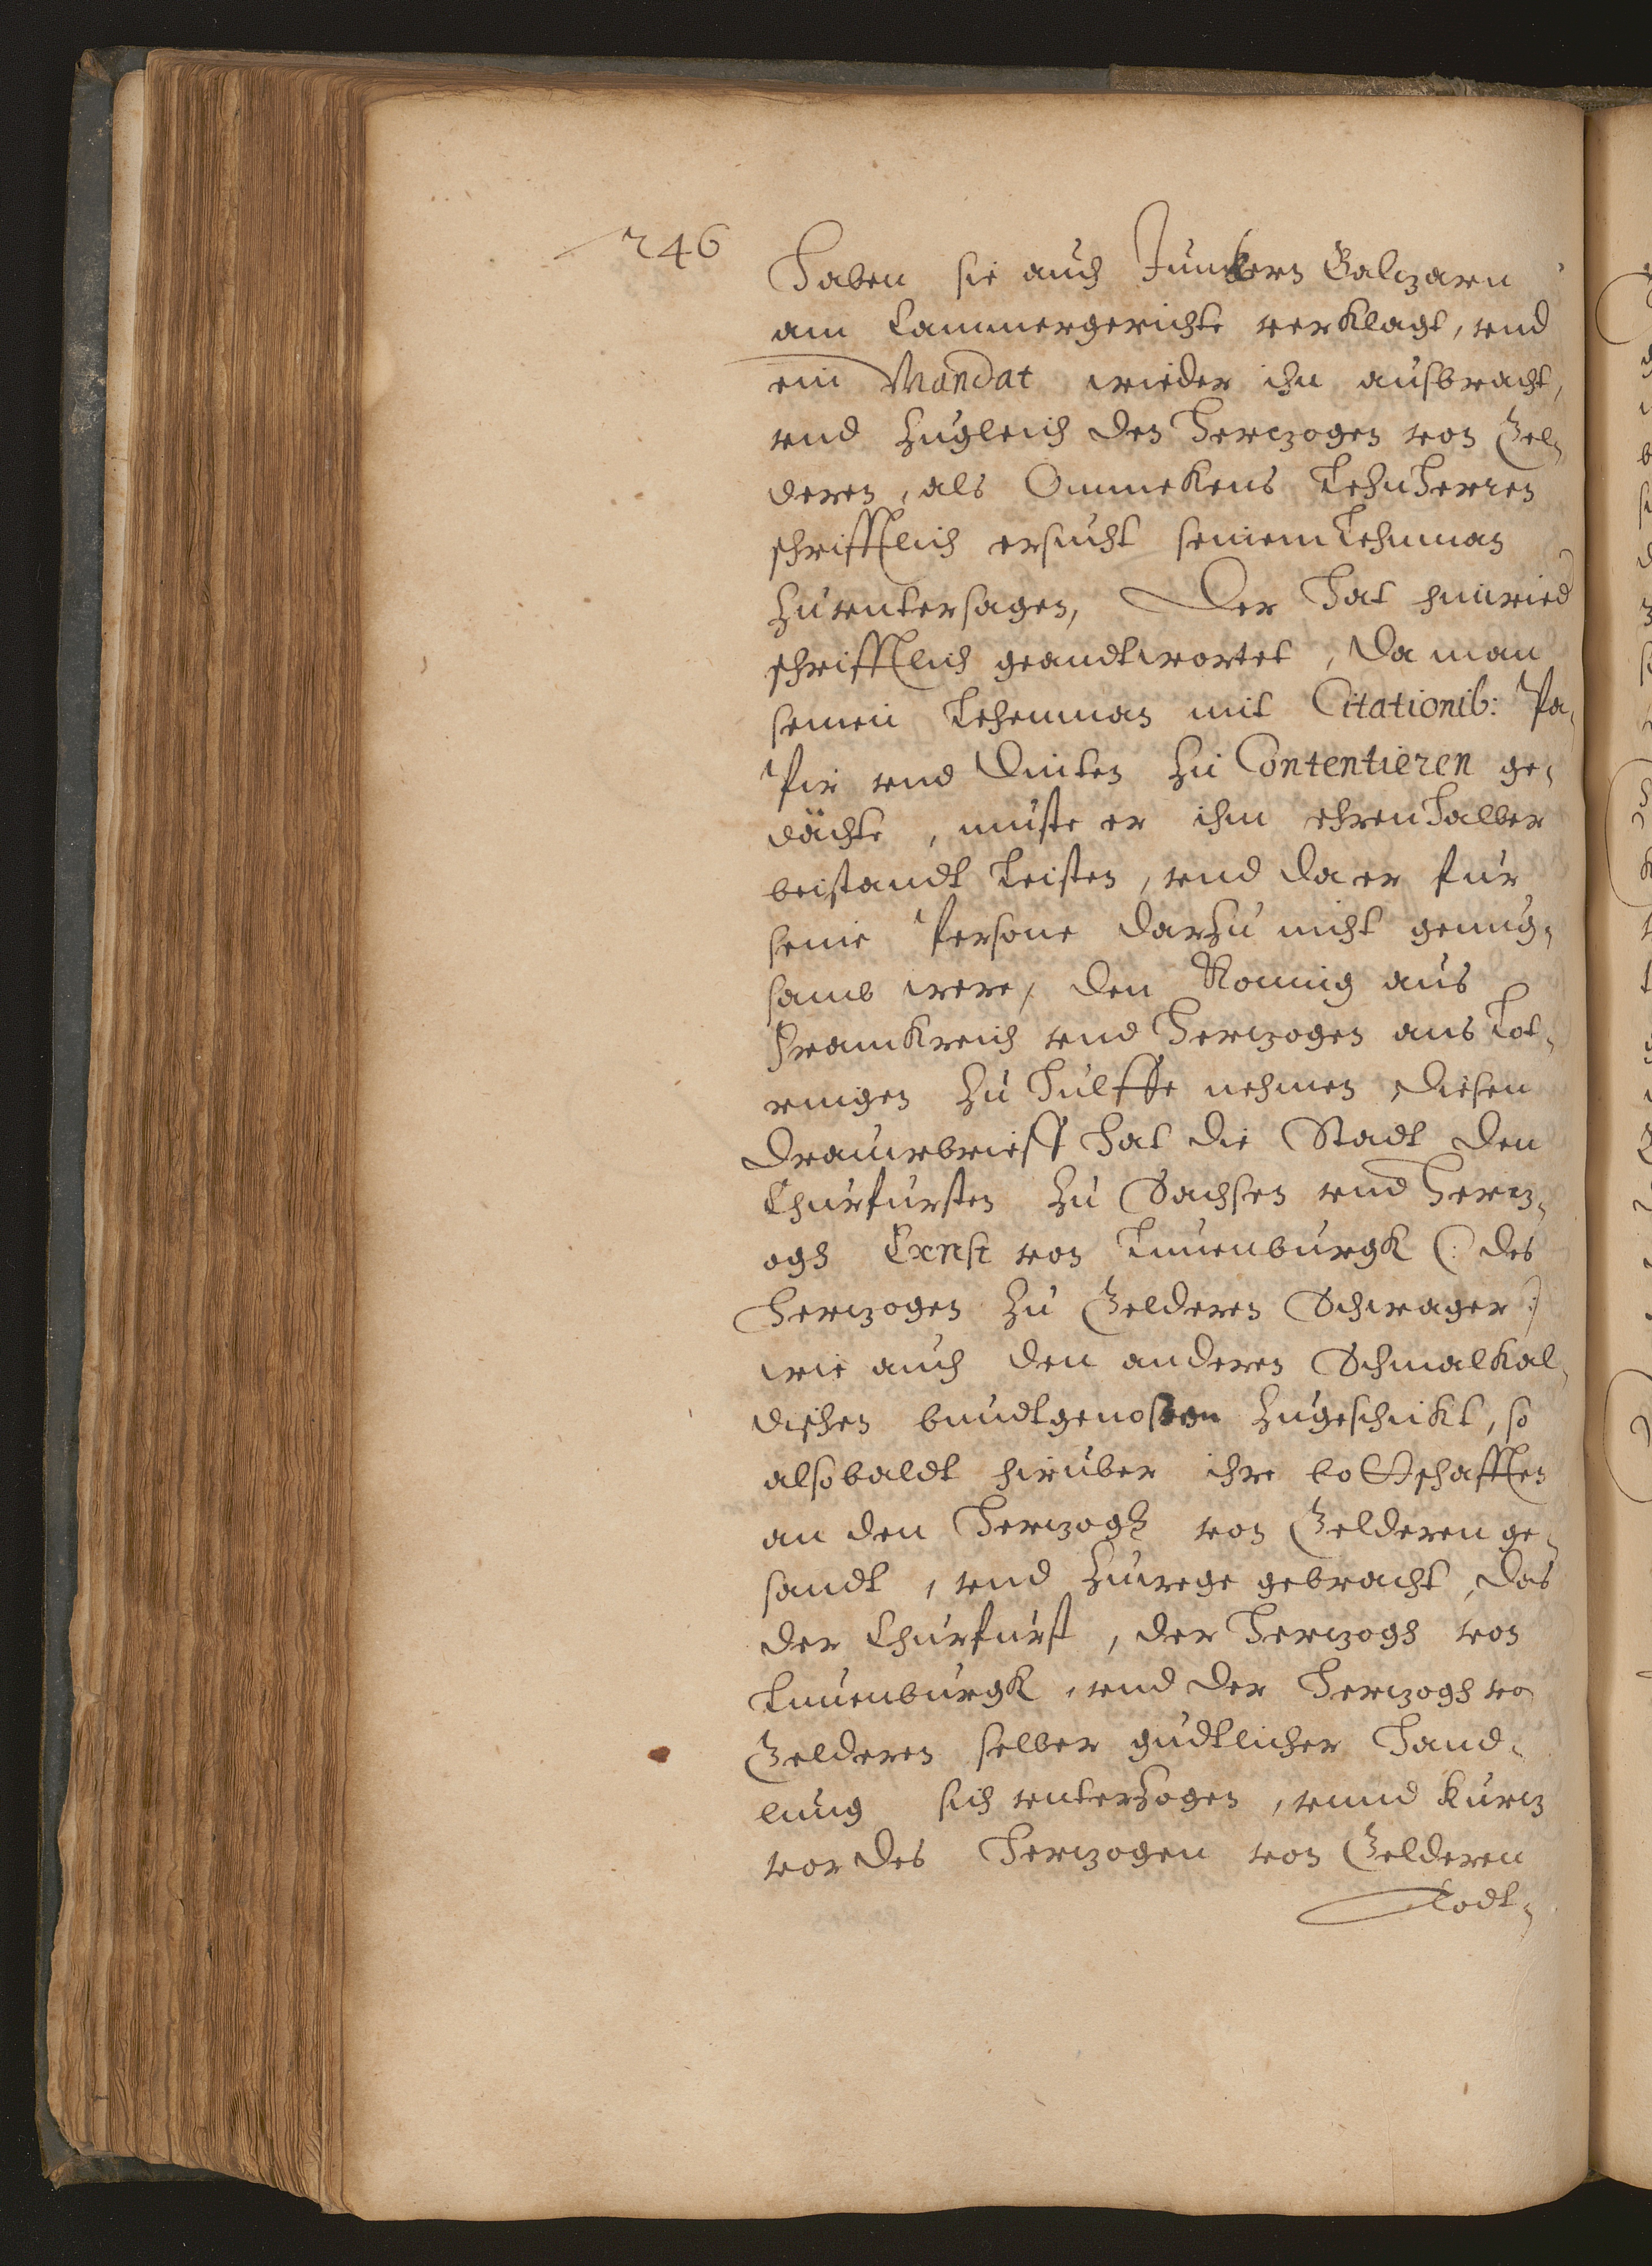 246
Haben sie auch Junckern Balzarn
am Cammergerichte verklagt, vnd
ein Mandat wieder ihn ausbracht,
vnd zugleich den Hertzogen von Gel=
deren, als Ommekens LehnHerren
schrifftlich ersucht seinem Lehnman
zu vntersagen, Der Hat hinwied
schrifftlich geandtwortet, Da man
seinen Lehenman mit Citationib: Pa=
Pir vnd Dinten zu Contentieren ge=
dächte, muste er ihm ehrenHalber
beistandt Leisten, vnd da er fur
seine Persone darzu nicht genug=
samb were, den Konnig aus
Franckreich vnd Hertzogen aus Lot=
ringen zu Hulffe nehmen, diesen
Drauwbrieff Hat die Stadt den
Churfursten zu Sachsen vnd Hertz=
ogh Ernst von Luneburgk (: des
Hertzogen zu Gelderen Schwager :)
wie auch den anderen Schmalkal=
dischen bundtgenossen zugeschickt, so
alsobaldt hiruber ihre bottschafften
an den Hertzogh von Gelderen ge=
sandt, vnd zuwege gebracht, das
der Churfurst, der Hertzogh von
Lunenburgk, vnd der Hertzogh vo
Gelderen selber gudtlicher Hand=
lung sich vnterzogen, vnnd kurtz
vor des Hertzogen von Gelderen
Todt=